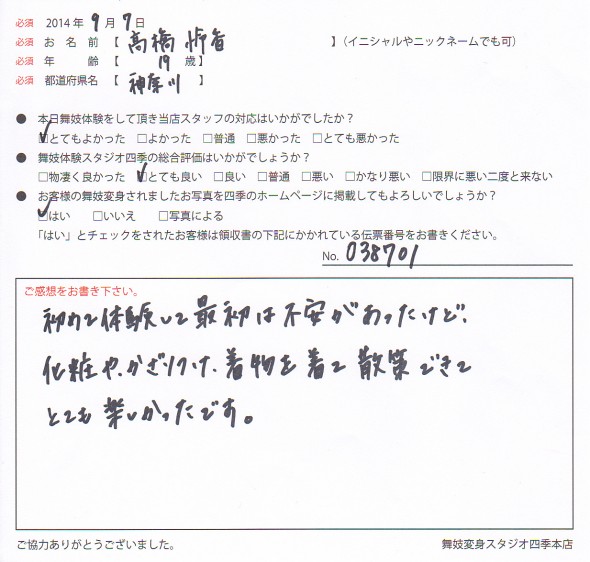 必須 2014年 9月 7日
必須 お名前【 高橋 香 】(イニシャルやニックネームでも可)
必須 年齢【 19 歳】
必須 都道府県名【 神奈川 】
● 本日舞妓体験をして頂き当店スタッフの対応はいかがでしたか?
☑とてもよかった □よかった □普通 □悪かった □とても悪かった
● 舞妓体験スタジオ四季の総合評価はいかがでしょうか?
□物凄く良かった ☑とても良い □良い □普通 □悪い □かなり悪い □限界に悪い二度と来ない
● お客様の舞妓変身されましたお写真を四季のホームページに掲載してもよろしいでしょうか?
☑はい □いいえ □写真による
「はい」とチェックをされたお客様は領収書の下記にかかれている伝票番号をお書きください。
No. 038701
ご感想をお書き下さい。
初めて体験して最初は不安があったけど、
化粧や、かざりつけ、着物を着て散策できて
とても楽しかったです。
ご協力ありがとうございました。 舞妓変身スタジオ四季本店